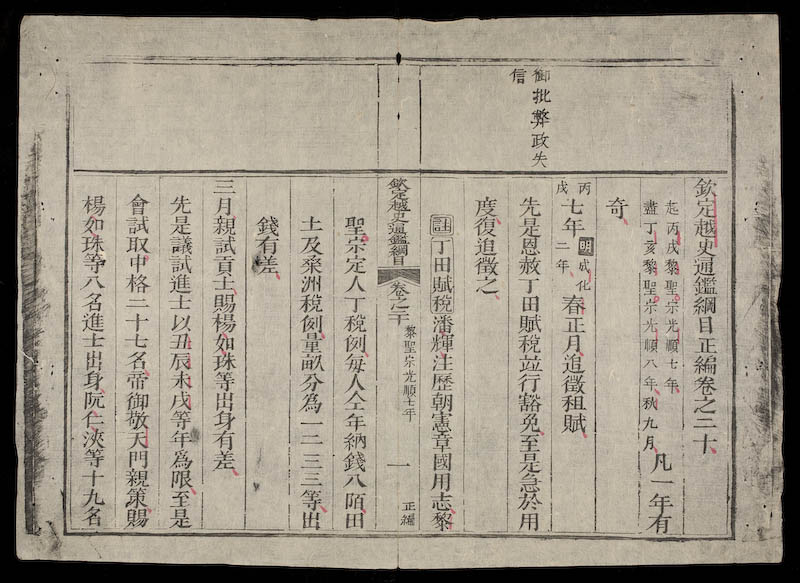 御批弊政失
信
欽定越史通鑑綱目正編卷之二十
起丙戌黎聖宗光順七年
盡丁亥黎聖宗光順八年秋九月
凡一年有
奇
丙戌
七年
明成化二年
春正月追徵租賦
先是恩赦丁田賦稅竝行豁免至是急於用
度復追徵之
註丁田賦稅潘輝注歷朝憲章國用志黎
欽定越史通鑑綱目
卷之二十
黎聖宗光順七年
一
正編
聖宗定人丁稅例每人仝年納錢八陌田
土及桑洲稅例量畝分為一二三等出
錢有差
三月親試貢士賜楊如珠等出身有差
先是議試進士以丑辰未戌等年為限至是
會試取中格二十七名帝御敬天門親策賜
楊如珠等八名進士出身阮仁浹等十九名